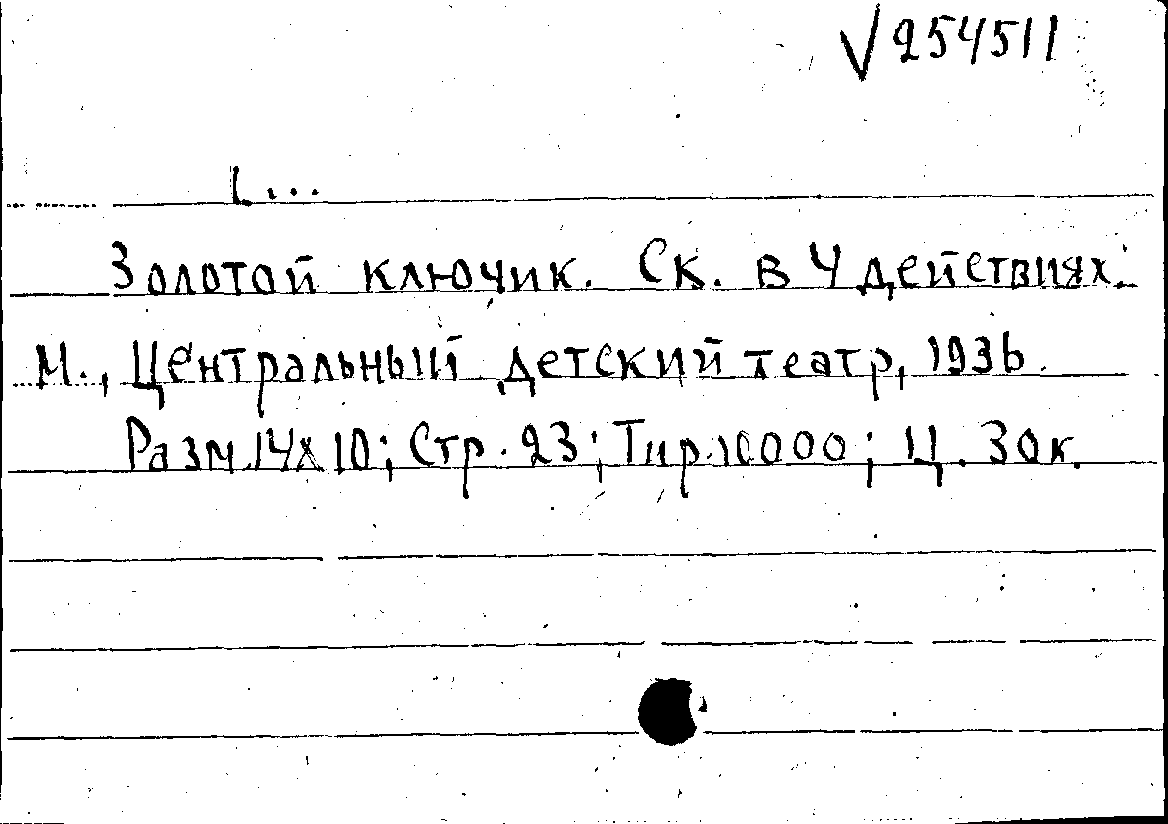 √254511
Золотой ключик. Ск. в 4 действиях.
М., Центральный детский театр, 1936.
Разм. 14х10; Стр. 23; Тир. 10000; Ц. 30к.